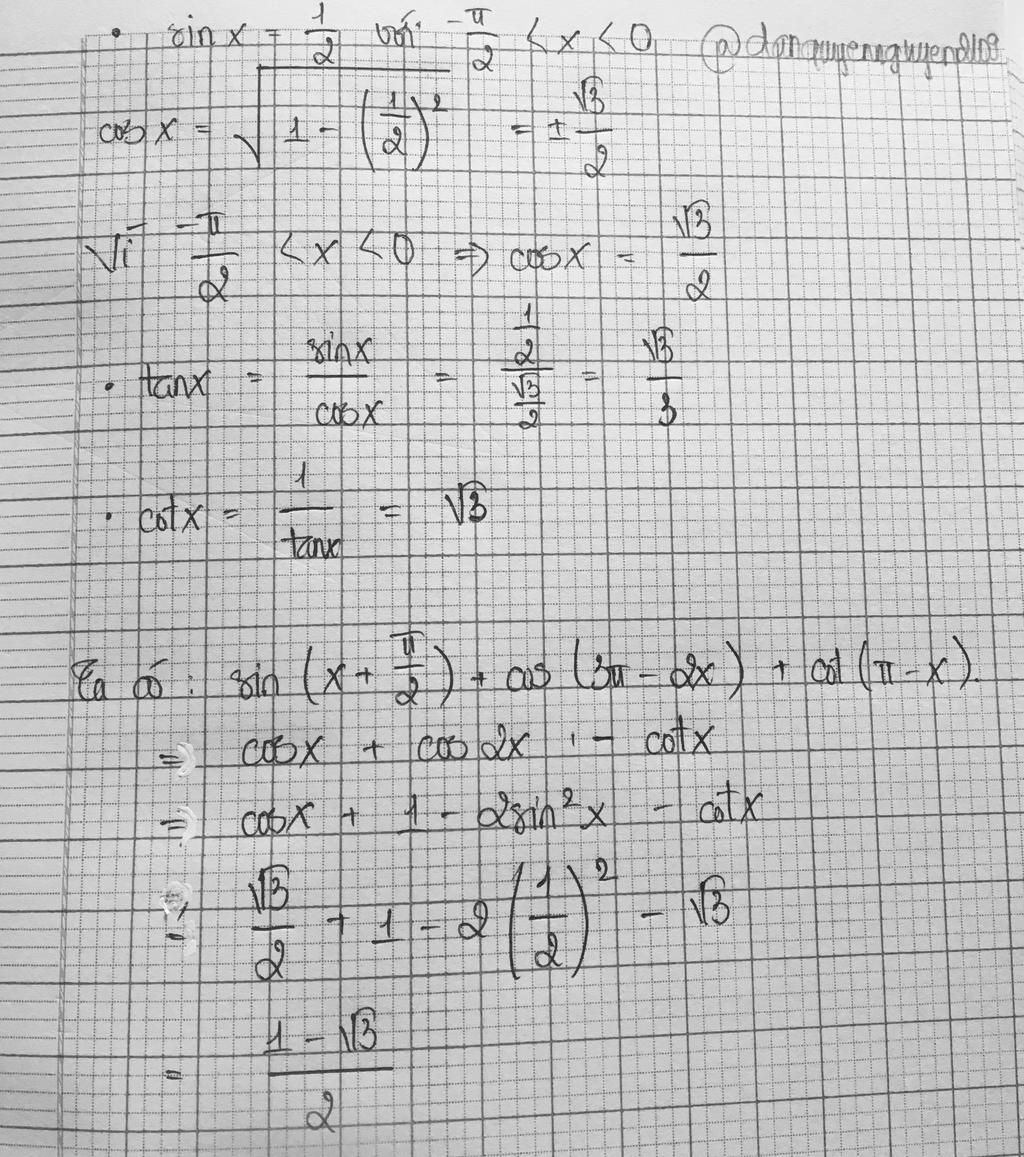 • sin x = 1/2 với -π/2 < x < 0 @danquyennguyend108
cos x = √(1 - (1/2)²) = ± √3/2
Vì -π/2 < x < 0 ⇒ cos x = √3/2
• tan x = sin x / cos x = (1/2)/(√3/2) = √3/3
• cot x = 1/tan x = √3
Ta có: sin (x + π/2) + cos (3π - 2x) + cot (π - x).
⇒ cos x + cos 2x - cot x
⇒ cos x + 1 - 2sin² x - cot x
= √3/2 + 1 - 2 (1/2)² - √3
= (1 - √3)/2